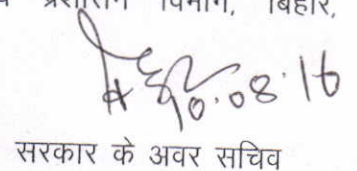 प्रशासन विभाग, बिहार,
10.08.16
सरकार के अवर सचिव